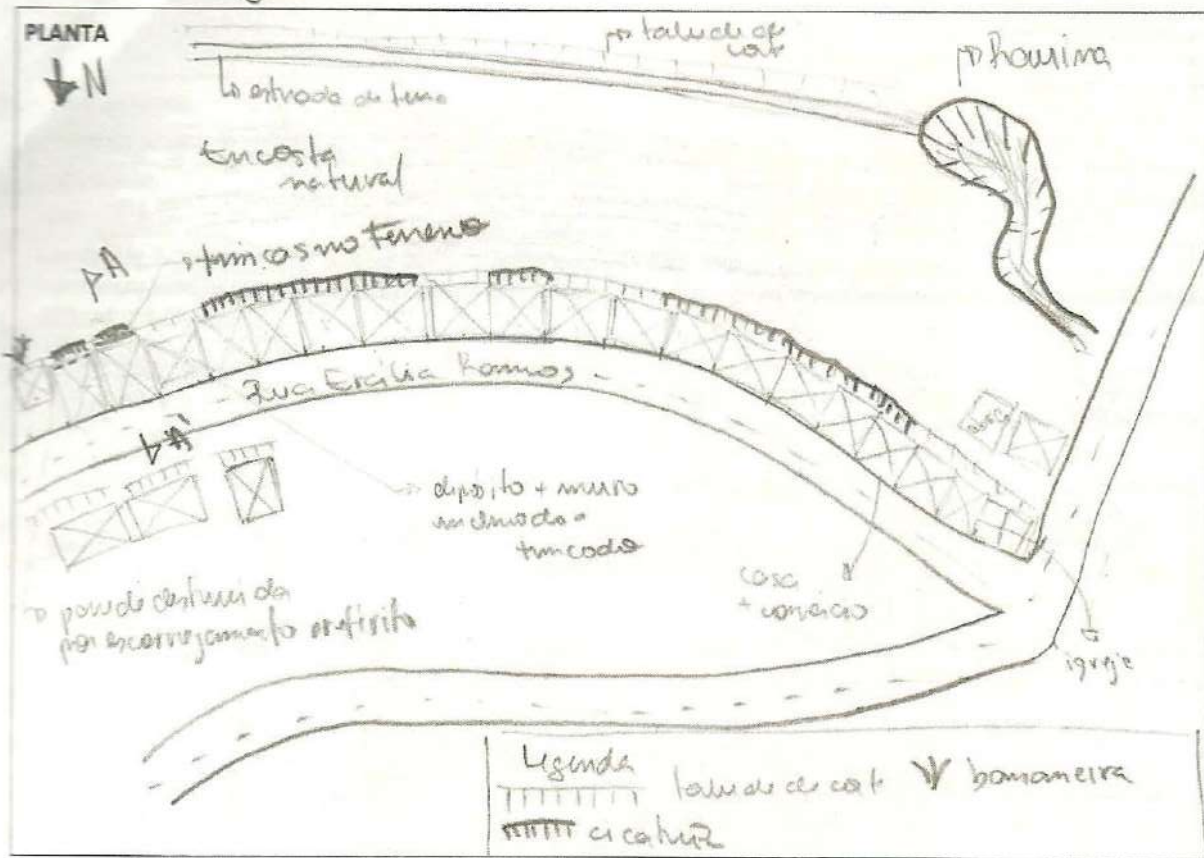 PLANTA
N
talude de
corte
Ravina
estrada de terra
Encosta
natural
A
trincas no terreno
Rua Ercília Ramos
A'
depósito + muro
inclinado e
trincado
casa
+ comércio
parede destruida
por escorregamento pretérito
igreja
Legenda
talude de corte
bananeira
cicatriz